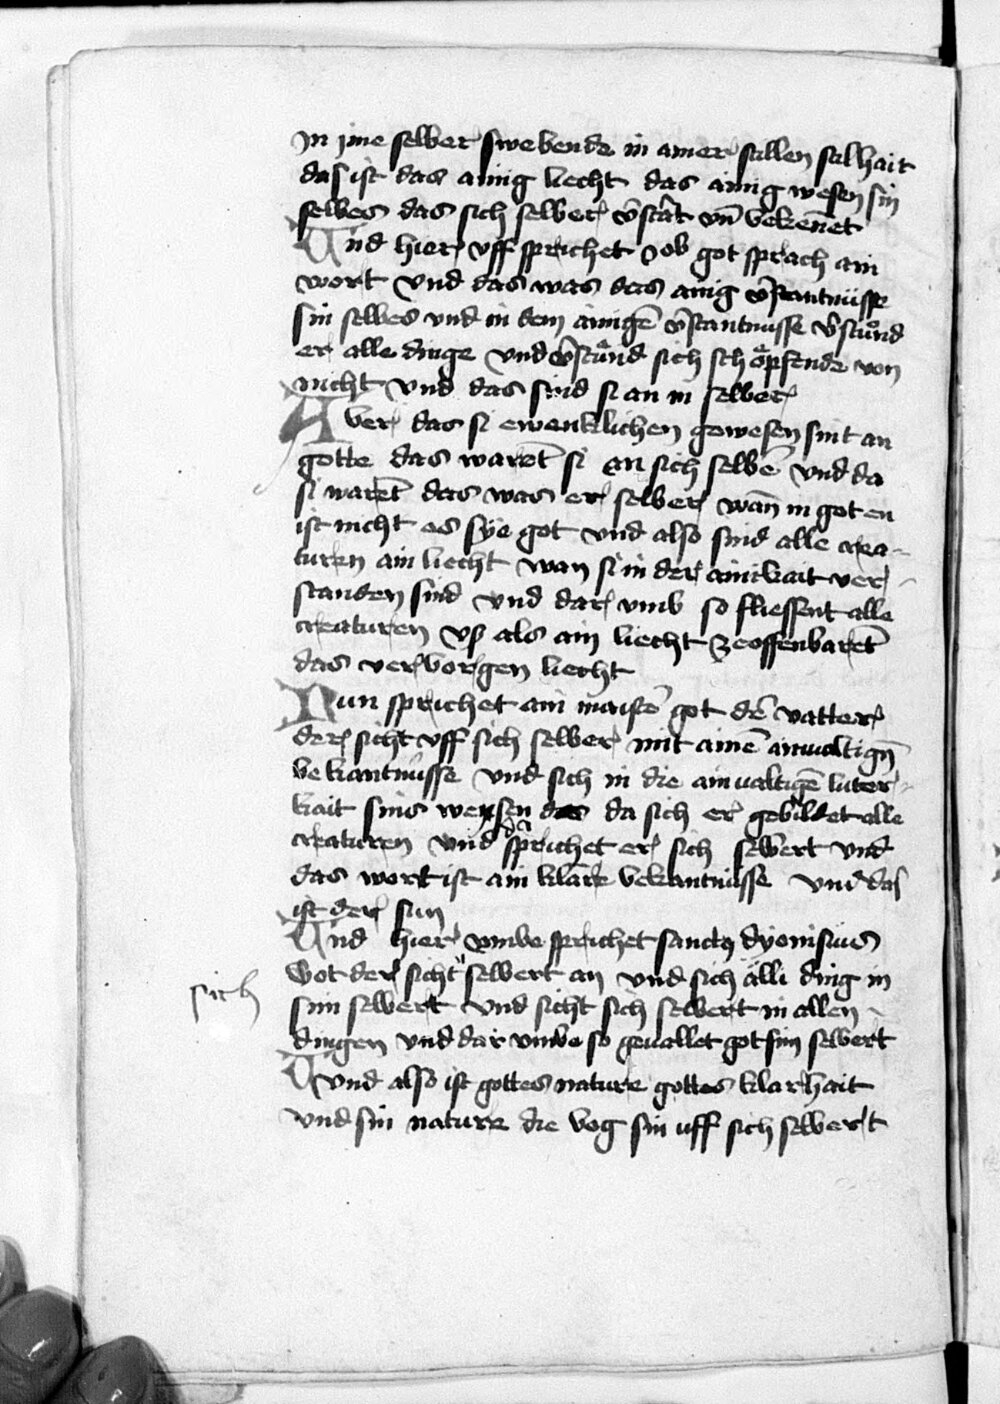 In jme selber swebende in ainer stillen stilhait
das ist das ainig liecht das ainig wesen sin
selbes das sich selber v̄stāt vn̄ bekēnet
Und hier uff sprichet Job got sprach ain
wort vnd das was das ainig v̄stantnüsse
sin selbes vnd in dem ainigē v̄stantnusse v̄stuͦnd
er alle dinge vnd v̄stuͦnd sich schöpfende von
nicht vnd das sind si an in selber
Aber das si ewenklichen gewesen sint an
gotte das warēt si an sich selbē vnd da
si warēt das was er selber wān in got en
ist nicht es sÿe got vnd also sind alle crea-
turen ain liecht wan si in der ainikait ver-
standen sind vnd dar vmb so fliessent alle
creaturen vß als ain liecht ze offenbarēt
das verborgen liecht
Nun sprichet ain maistē got dē vatter
der sicht uff sich selber mit ainē ainualtigē
bekantnüsse vnd sich in die ainualtigē luter-
kait sins wesen da sich er gebildet alle
creaturen vnd da sprichet er sich selbert vnd
das wort ist ain klare bekantnüsse vnd das
ist der sun
Und hier vmbe sprichet sanctꝰ dyonisius
Got der sicht " selbert an vnd sich älli ding in
sich
sim selbert vnd sicht sich selbert in allen
dingen vnd dar vmbe so geuallet got sim selbert
Vnd also ist gottes nature gottes klarhait
vnd sin nature die bog sin uff sich selbert